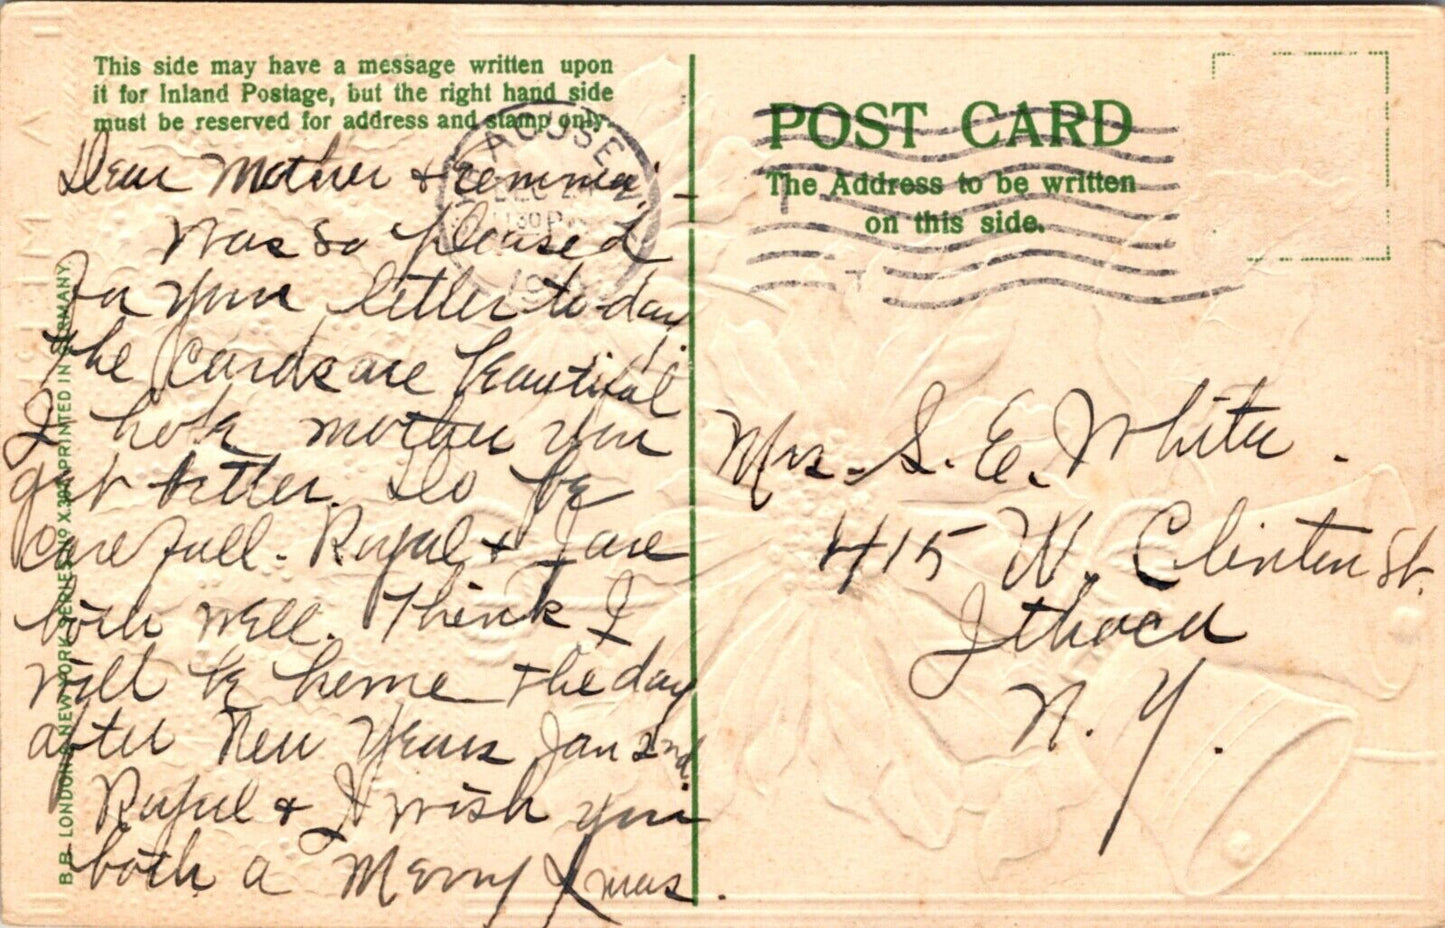 This side may have a message written upon
it for Inland Postage, but the right hand side
must be reserved for address and stamp only.
Dear Mother & Emma,
Was so pleased
for your letter to-day
the cards are beautiful
I hope mother you
get better. Do be
carefull. Royal & Jane
both well. Think I
will be home the day
after New Years Jan 2nd.
Royal & I wish you
both a Merry Xmas.
B.B. LONDON & NEW YORK SERIES No X PRINTED IN GERMANY
POST CARD
The Address to be written
on this side.
30 P
Mrs. S. E. White.
415 W. Clinton St.
Ithaca
N. Y.